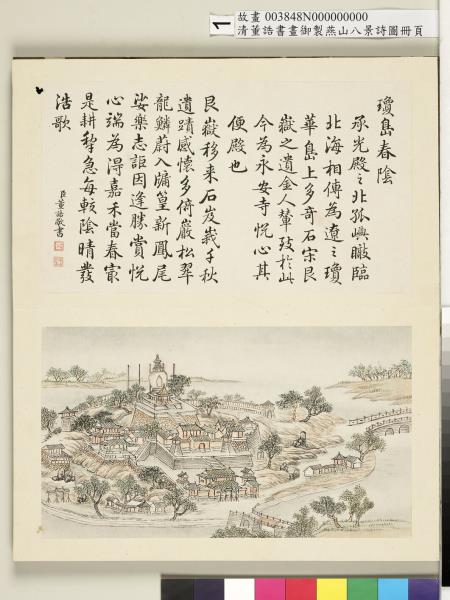 1
故畫 003848N000000000
清董誥書畫御製燕山八景詩圖冊頁
瓊島春陰
承光殿之北孤嶼瞰臨
北海相傳為遼之瓊
華島上多奇石宋艮
嶽之遺金人輦致於此
今為永安寺悅心其
便殿也
艮嶽移来石岌峩千秋
遺蹟感懷多倚巖松翠
龍鱗蔚入牖篁新鳳尾
娑樂志詎因逢勝賞悅
心端為淂嘉禾當春最
是耕犂急每較陰晴發
浩歌
臣董誥敬書